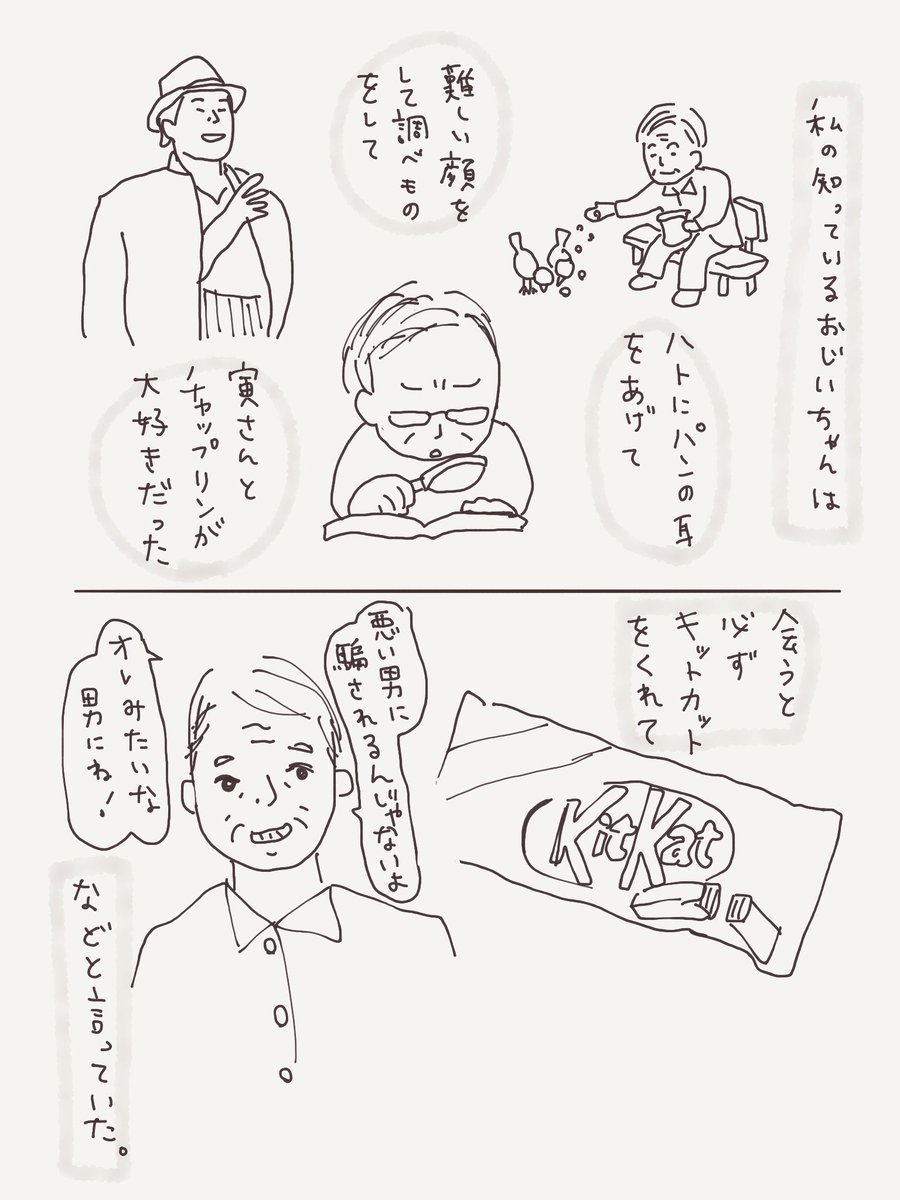 私の知っているおじいちゃんは
ハトにパンの耳
をあげて
難しい顔を
して調べもの
をして
寅さんと
チャップリンが
大好きだった
会うと
必ず
キットカット
をくれて
KitKat
悪い男に
騙されるんじゃないよ
オレみたいな
男にね！
などと言っていた。